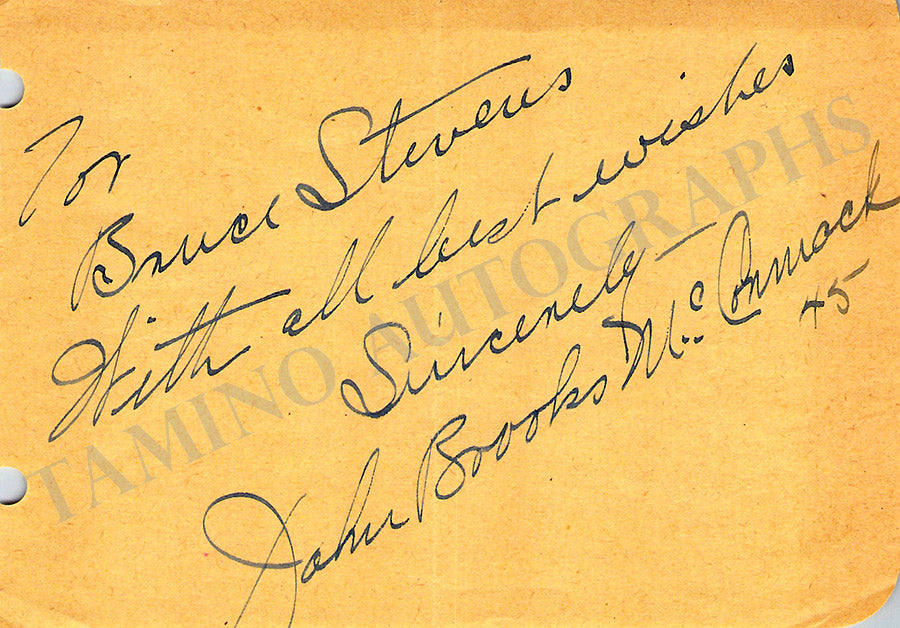 For
Bruce Stevens
With all best wishes
Sincerely —
John Brooks McCormack
45
TAMINO AUTOGRAPHS